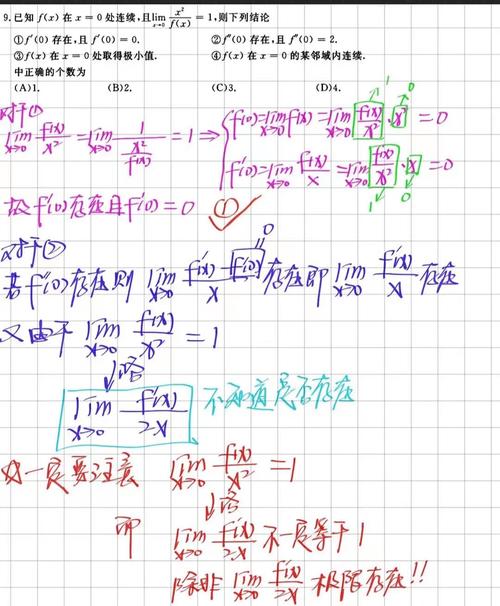 9.已知 f(x) 在 x = 0 处连续,且lim x→0 x²/f(x) = 1,则下列结论
①f′(0) 存在,且 f′(0) = 0. ②f″(0) 存在,且 f″(0) = 2.
③f(x) 在 x = 0 处取得极小值. ④f(x) 在 x = 0 的某邻域内连续.
中正确的个数为
(A)1. (B)2. (C)3. (D)4.
对于①
lim x→0 f(x)/x² = lim x→0 1/(x²/f(x)) = 1 ⇒ { f(0)=lim x→0 f(x)=lim x→0 f(x)/x² · x² = 0 1 0
f′(0)=lim x→0 f(x)/x =lim x→0 f(x)/x² · x =0 1 0
故 f′(0)存在且f′(0)=0 ① ✓
对于② 0
若f″(0)存在则 lim x→0 (f′(x) - f′(0))/x 存在即 lim x→0 f′(x)/x 存在
又由于 lim x→0 f(x)/x² = 1
↓洛
lim x→0 f′(x)/2x 不知道是否存在
☆一定要注意 lim x→0 f(x)/x² =1
↓洛
即 lim x→0 f′(x)/2x 不一定等于1
除非 lim x→0 f′(x)/2x 极限存在!!